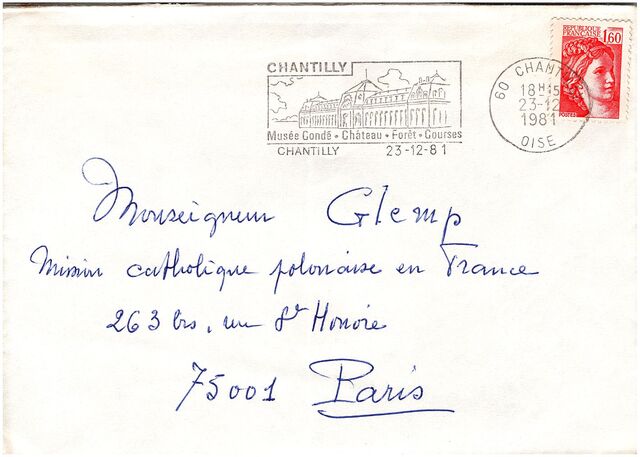 CHANTILLY
Musée Condé • Château • Forêt • Courses
CHANTILLY 23-12-81
60 CHANTI
18H15
23-12
1981
OISE
REPUBLIQUE FRANCAISE
1,60
POSTES
Monseigneur Glemp
Mission catholique polonaise en France
263 bis, rue St Honoré
75001 Paris